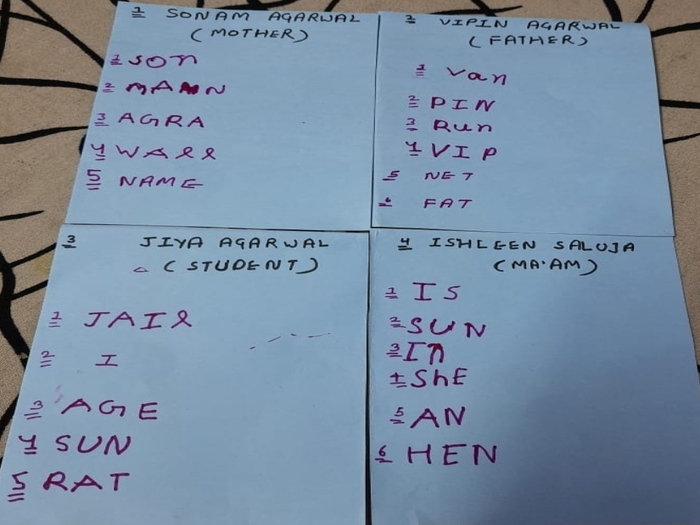 1 SONAM AGARWAL
(MOTHER)
1 SOn
2 MAAN
3 AGRA
4 WAll
5 NAME
2 VIPIN AGARWAL
(FATHER)
1 Van
2 PIN
3 Run
4 VIP
5 NET
6 FAT
3 JIYA AGARWAL
(STUDENT)
1 JAIl
2 I
3 AGE
4 SUN
5 RAT
4 ISHLEEN SALUJA
(MA'AM)
1 IS
2 SUN
3 In
4 ShE
5 AN
6 HEN